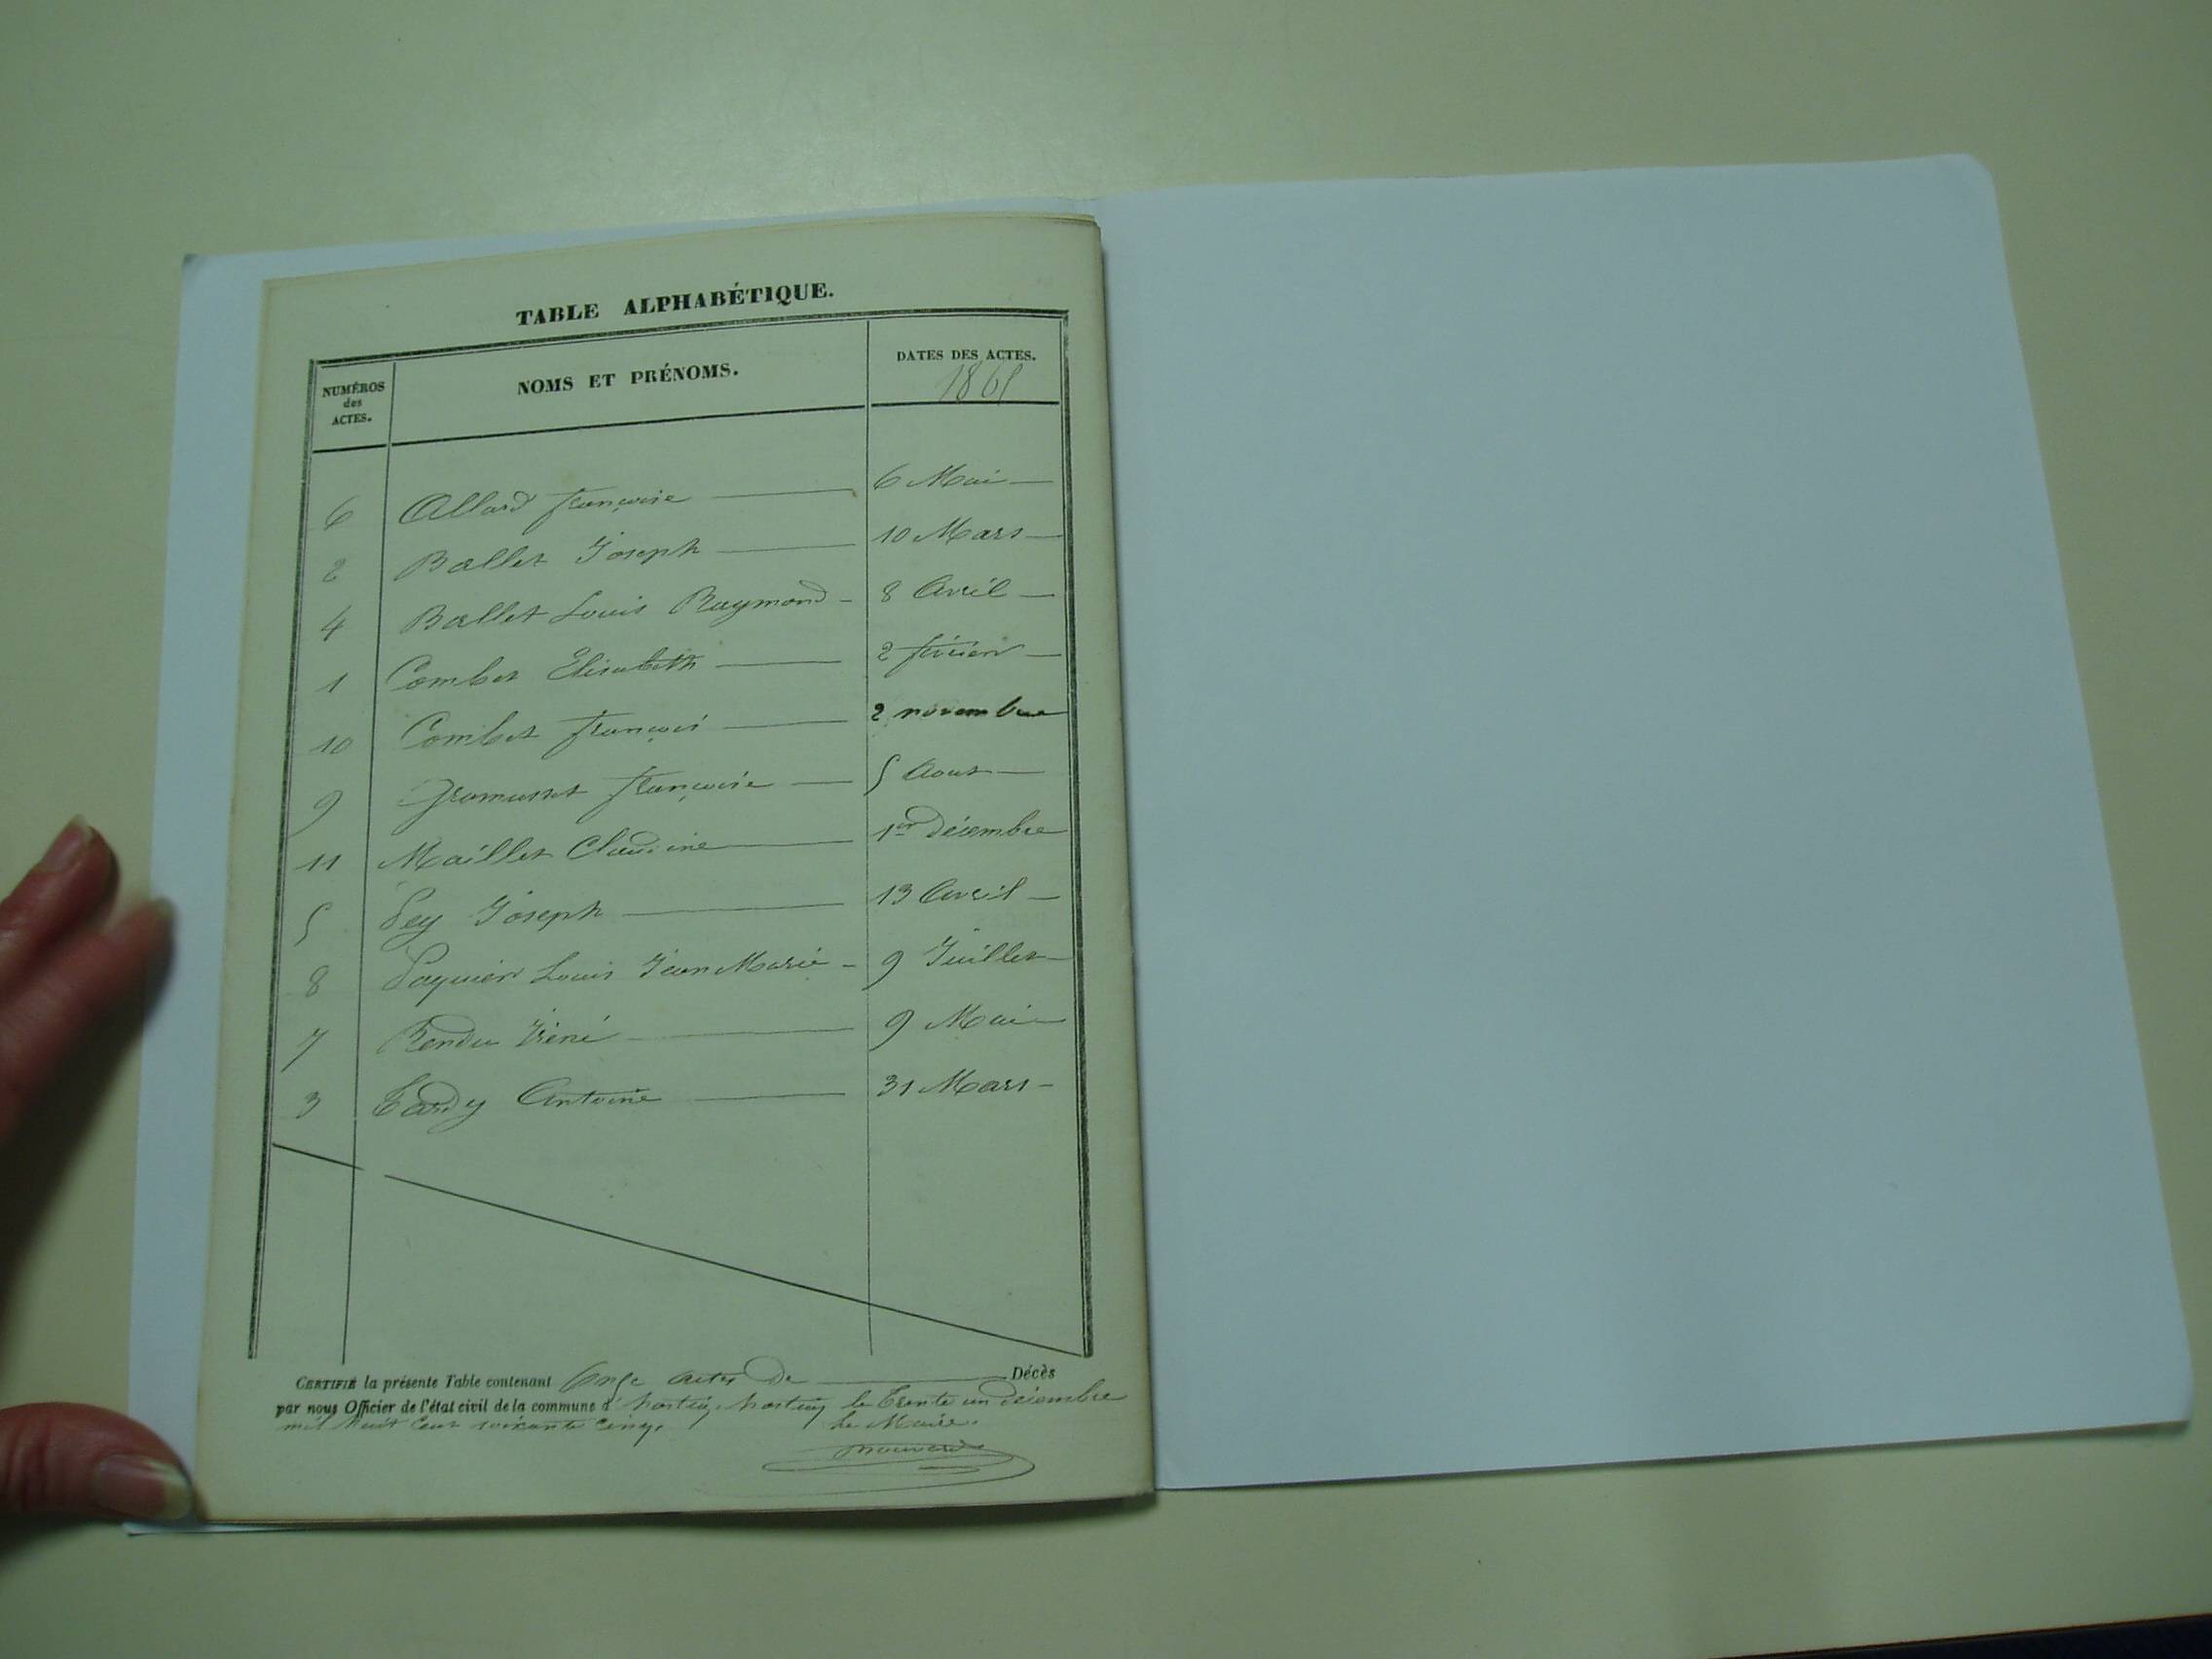 TABLE ALPHABÉTIQUE.
NUMÉROS des ACTES.
NOMS ET PRÉNOMS.
DATES DES ACTES.
1865
6 Allard françoise 6 Mai
2 Ballet Joseph 10 Mars
4 Ballet Louis Raymond 8 Avril
1 Combet Elisabeth 2 février
10 Combet françois 2 novembre
9 françoise 5 Aout
11 Maillet Claudine 1er Décembre
5 Pey Joseph 13 Avril
8 Paquier Louis Jean Marie 9 Juillet
7 Rendu Iréné 9 Mai
3 Tardy Antoine 31 Mars
CERTIFIÉ la présente Table contenant Onze actes de Décès
par nous Officier de l'état civil de la commune d le trente un décembre
mil huit cent soixante cinq. Le Maire.